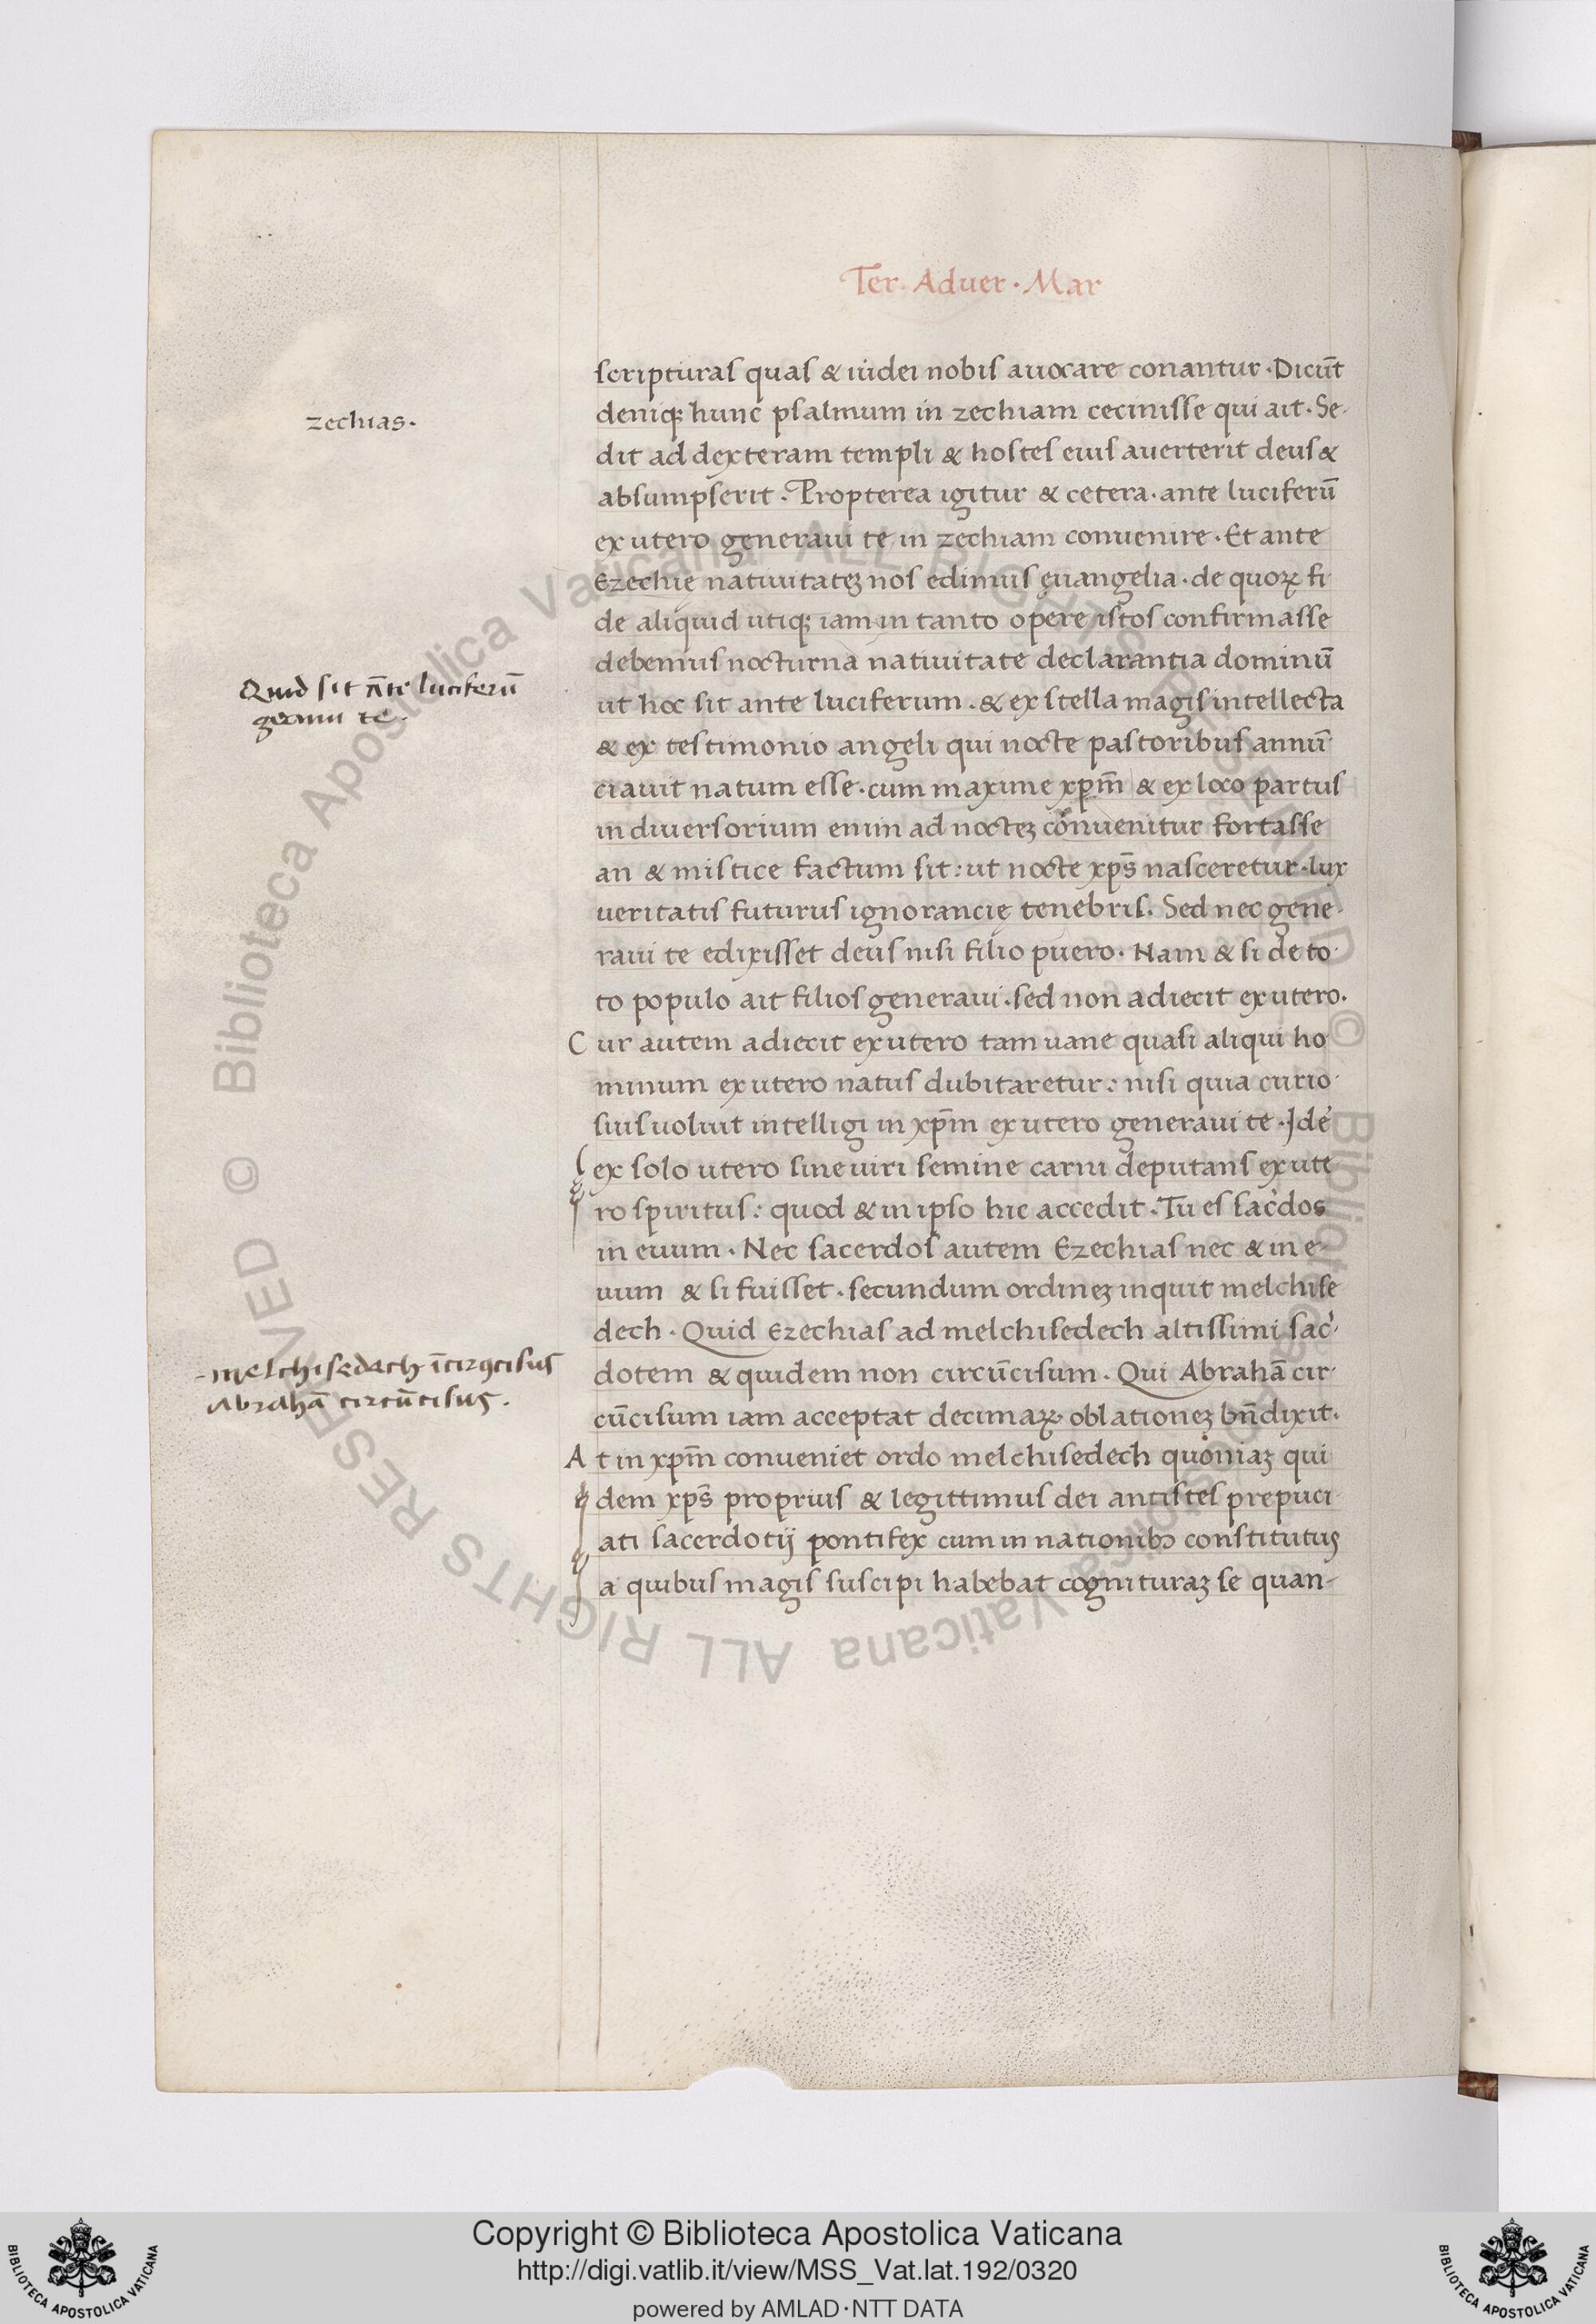 Ter. Adver. Mar
scripturas quas & iudei nobis avocare conantur. Dicūt
deniq; hunc psalmum in zechiam cecinisse qui ait. Se-
dit ad dexteram templi & hostes eius averterit deus &
absumpserit. Propterea igitur & cetera. ante luciferū
ex utero generavi te in zechiam convenire. Et ante
Ezechię nativitatez nos edimus evangelia. de quoꝝ fi
de aliquid utiq; iam in tanto opere istos confirmasse
debemus nocturna nativitate declarantia dominū
ut hoc sit ante luciferum. & ex stella magis intellecta
& ex testimonio angeli qui nocte pastoribus annū-
ciavit natum esse. cum maxime xp̄m & ex loco partus
in diversorium enim ad noctez convenitur fortasse
an & mistice factum sit: ut nocte xp̄s nasceretur. lux
veritatis futurus ignorancię tenebris. Sed nec gene-
ravi te edixisset deus nisi filio puero. Nam & si de to-
to populo ait filios generavi. sed non adiecit ex utero.
Cur autem adiecit ex utero tam vane quasi aliqui ho
minum ex utero natus dubitaretur: nisi quia curio-
sius voluit intelligi in xp̄m ex utero generavi te. Idē
ex solo utero sine viri semine carni deputans ex ute
ro spiritus: quod & in ipso hic accedit. Tu es sac̄dos
in evum. Nec sacerdos autem Ezechias nec & in e-
vum & si fuisset. secundum ordinez inquit melchise
dech. Quid Ezechias ad melchisedech altissimi sac̄-
dotem & quidem non circūcisum. Qui Abrahā cir-
cūcisum iam acceptat decimaꝝ oblationez bn̄dixit.
At in xp̄m conveniet ordo melchisedech quoniaz qui
dem xp̄s proprius & legittimus dei antistes prepuci-
ati sacerdotij pontifex cum in nationibꝰ constitutus
a quibus magis suscipi habebat cognituraz se quan-
zechias.
Quid sit āte luciferū
genui te.
melchisedech īcircūcisus
Abrahā circūcisus.
© Biblioteca Apostolica Vaticana ALL RIGHTS RESERVED © Biblioteca Apostolica Vaticana ALL RIGHTS RESERVED
Copyright © Biblioteca Apostolica Vaticana
http://digi.vatlib.it/view/MSS_Vat.lat.192/0320
powered by AMLAD·NTT DATA
BIBLIOTECA APOSTOLICA VATICANA
BIBLIOTECA APOSTOLICA VATICANA